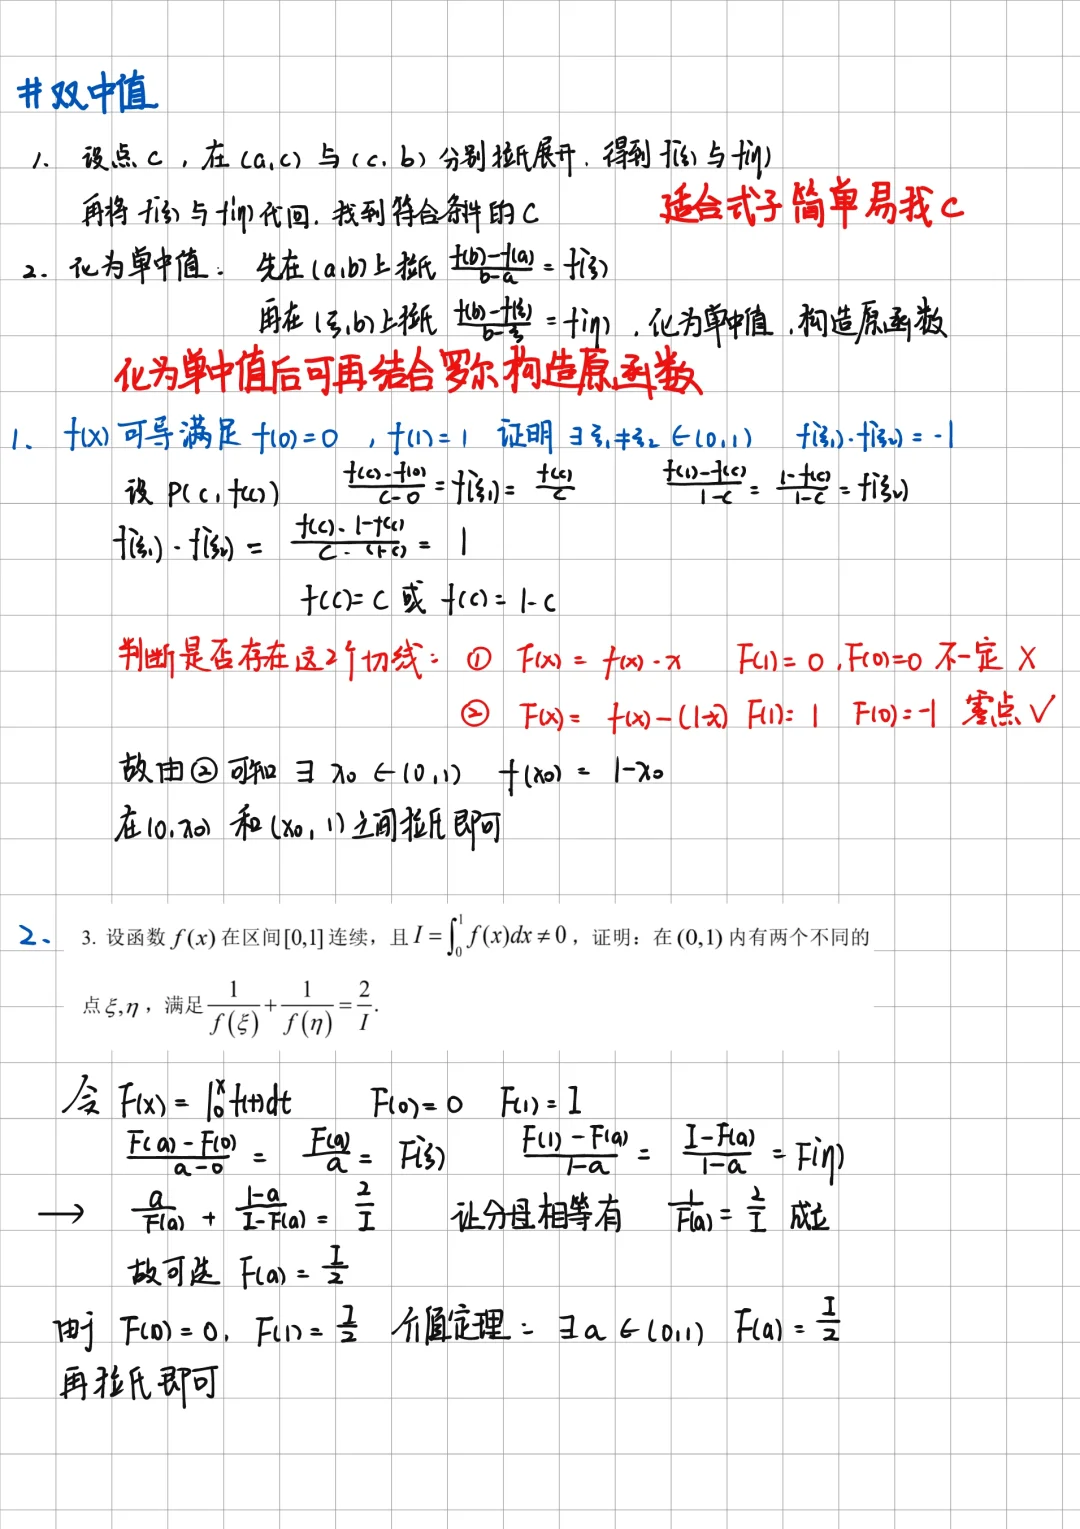 #双中值
1. 设点c，在(a,c)与(c,b)分别拉氏展开．得到f'(ξ)与f'(η)
再将f'(ξ)与f'(η)代回．找到符合条件的C
适合式子简单易找c
2. 化为单中值：先在(a,b)上拉氏 \frac{f(b)-f(a)}{b-a}=f'(ξ)
再在(ξ,b)上拉氏 \frac{f(b)-f(ξ)}{b-ξ}=f'(η)，化为单中值．构造原函数
化为单中值后可再结合罗尔构造原函数
1、f(x)可导满足f(0)=0，f(1)=1 证明∃ξ₁≠ξ₂∈(0,1) f'(ξ₁)·f'(ξ₂)=-1
设P(c,f(c)) \frac{f(c)-f(0)}{c-0}=f'(ξ₁)=\frac{f(c)}{c} \frac{f(1)-f(c)}{1-c}=\frac{1-f(c)}{1-c}=f'(ξ₂)
f'(ξ₁)·f'(ξ₂)=\frac{f(c)·1-f(c)}{c·(1-c)}=1
f(c)=c或f(c)=1-c
判断是否存在这2个切线：① F(x)=f(x)-x F(1)=0,F(0)=0 不一定 ×
② F(x)=f(x)-(1-x) F(1)=1 F(0)=-1 零点✓
故由②可知∃x₀∈(0,1) f(x₀)=1-x₀
在(0,x₀)和(x₀,1)之间拉氏即可
2、 3. 设函数 f(x) 在区间[0,1]连续，且 I=∫₀¹f(x)dx≠0，证明：在(0,1)内有两个不同的
点ξ,η，满足\frac{1}{f(ξ)}+\frac{1}{f(η)}=\frac{2}{I}.
令F(x)=∫₀ˣf(t)dt F(0)=0 F(1)=I
\frac{F(a)-F(0)}{a-0}=\frac{F(a)}{a}=F'(ξ) \frac{F(1)-F(a)}{1-a}=\frac{I-F(a)}{1-a}=F'(η)
→ \frac{a}{F(a)}+\frac{1-a}{I-F(a)}=\frac{2}{I} 让分母相等有 \frac{1}{F(a)}=\frac{2}{I} 成立
故可选F(a)=\frac{I}{2}
由于F(0)=0，F(1)=\frac{I}{2} 介值定理：∃a∈(0,1) F(a)=\frac{I}{2}
再拉氏即可